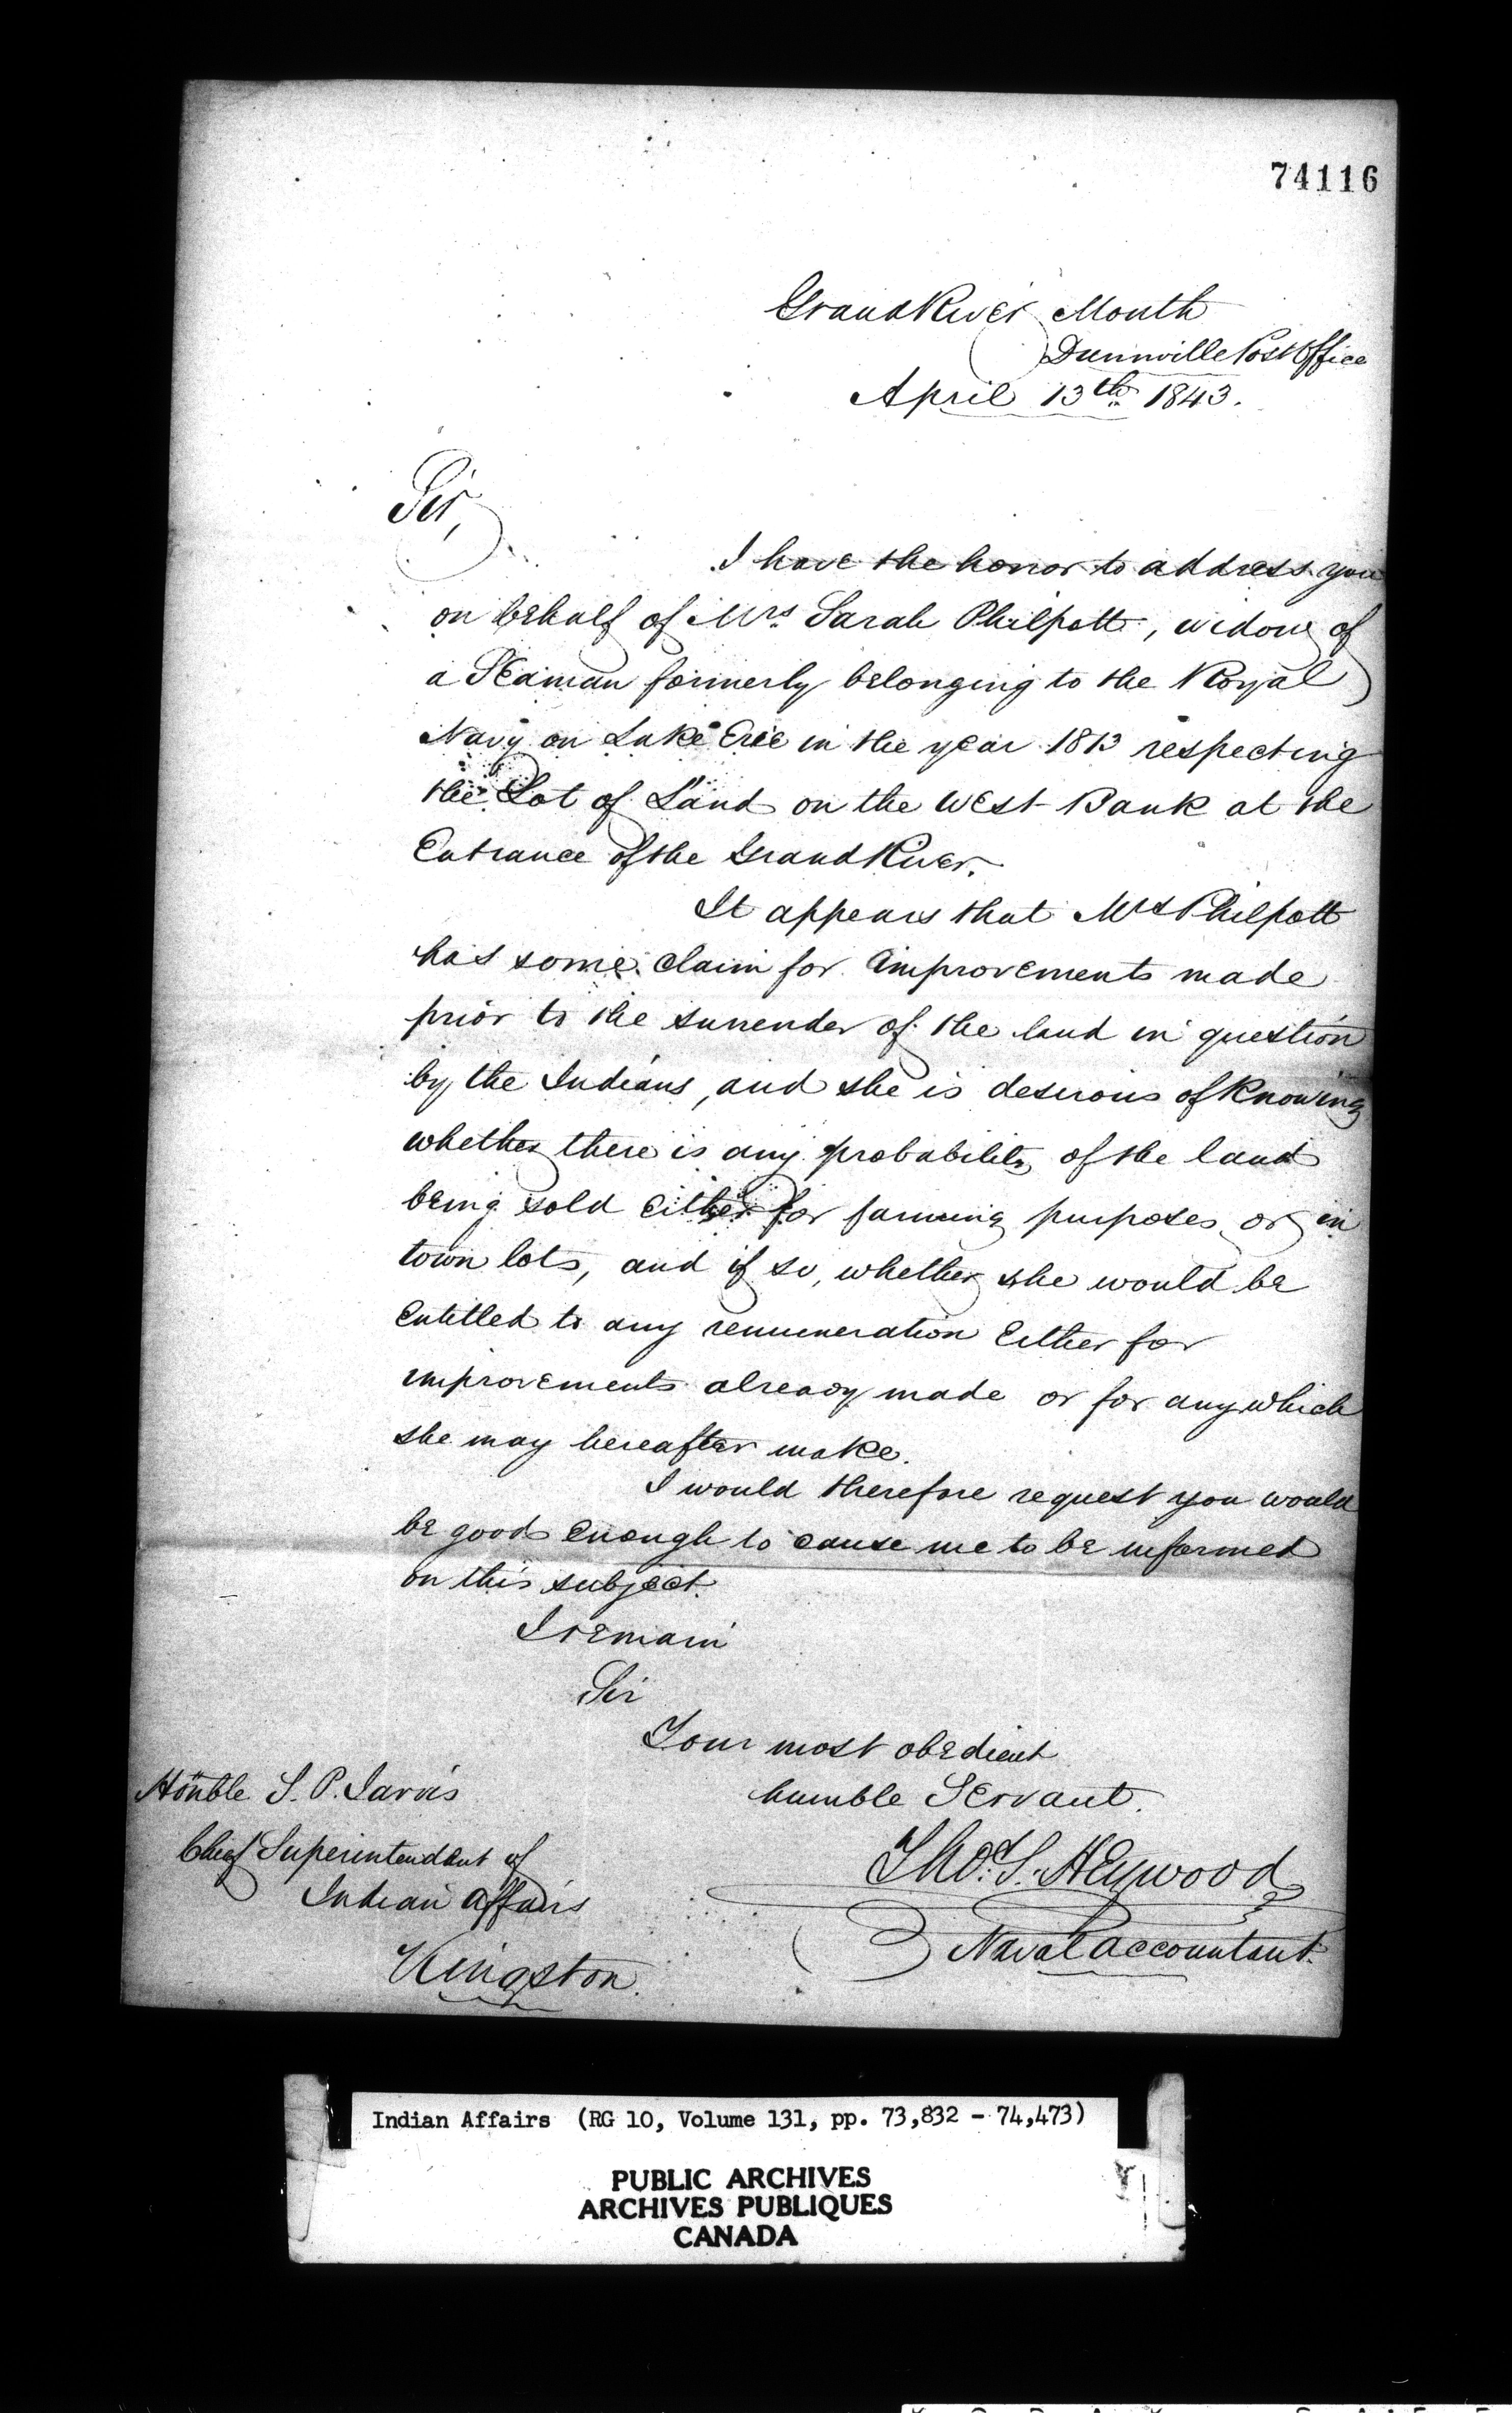 74116
Grand River Mouth
Dunnville Post Office
April 13th 1843.
Sir,
I have the honor to address you
on behalf of Mrs. Sarah Philpott, widow of
a Seaman formerly belonging to the Royal
Navy on Lake Erie in the year 1813 respecting
the Lot of Land on the West Bank at the
Entrance of the Grand River.
It appears that Mrs Philpott
has some claim for improvements made
prior to the surrender of the land in question
by the Indians, and she is desirous of knowing
whether there is any probability of the land
being sold either for farming purposes or in
town lots, and if so, whether she would be
entitled to any remuneration Either for
improvements already made or for any which
she may hereafter make.
I would therefore request you would
be good enough to cause me to be informed
on this subject.
I remain
Sir
Your most obedient
humble Servant.
Thos. S. Heywood
Naval Accountant.
Honble S. P. Jarvis
Chief Superintendant of
Indian Affairs
Kingston.
Indian Affairs (RG 10, Volume 131, pp. 73,832 - 74,473)
PUBLIC ARCHIVES
ARCHIVES PUBLIQUES
CANADA